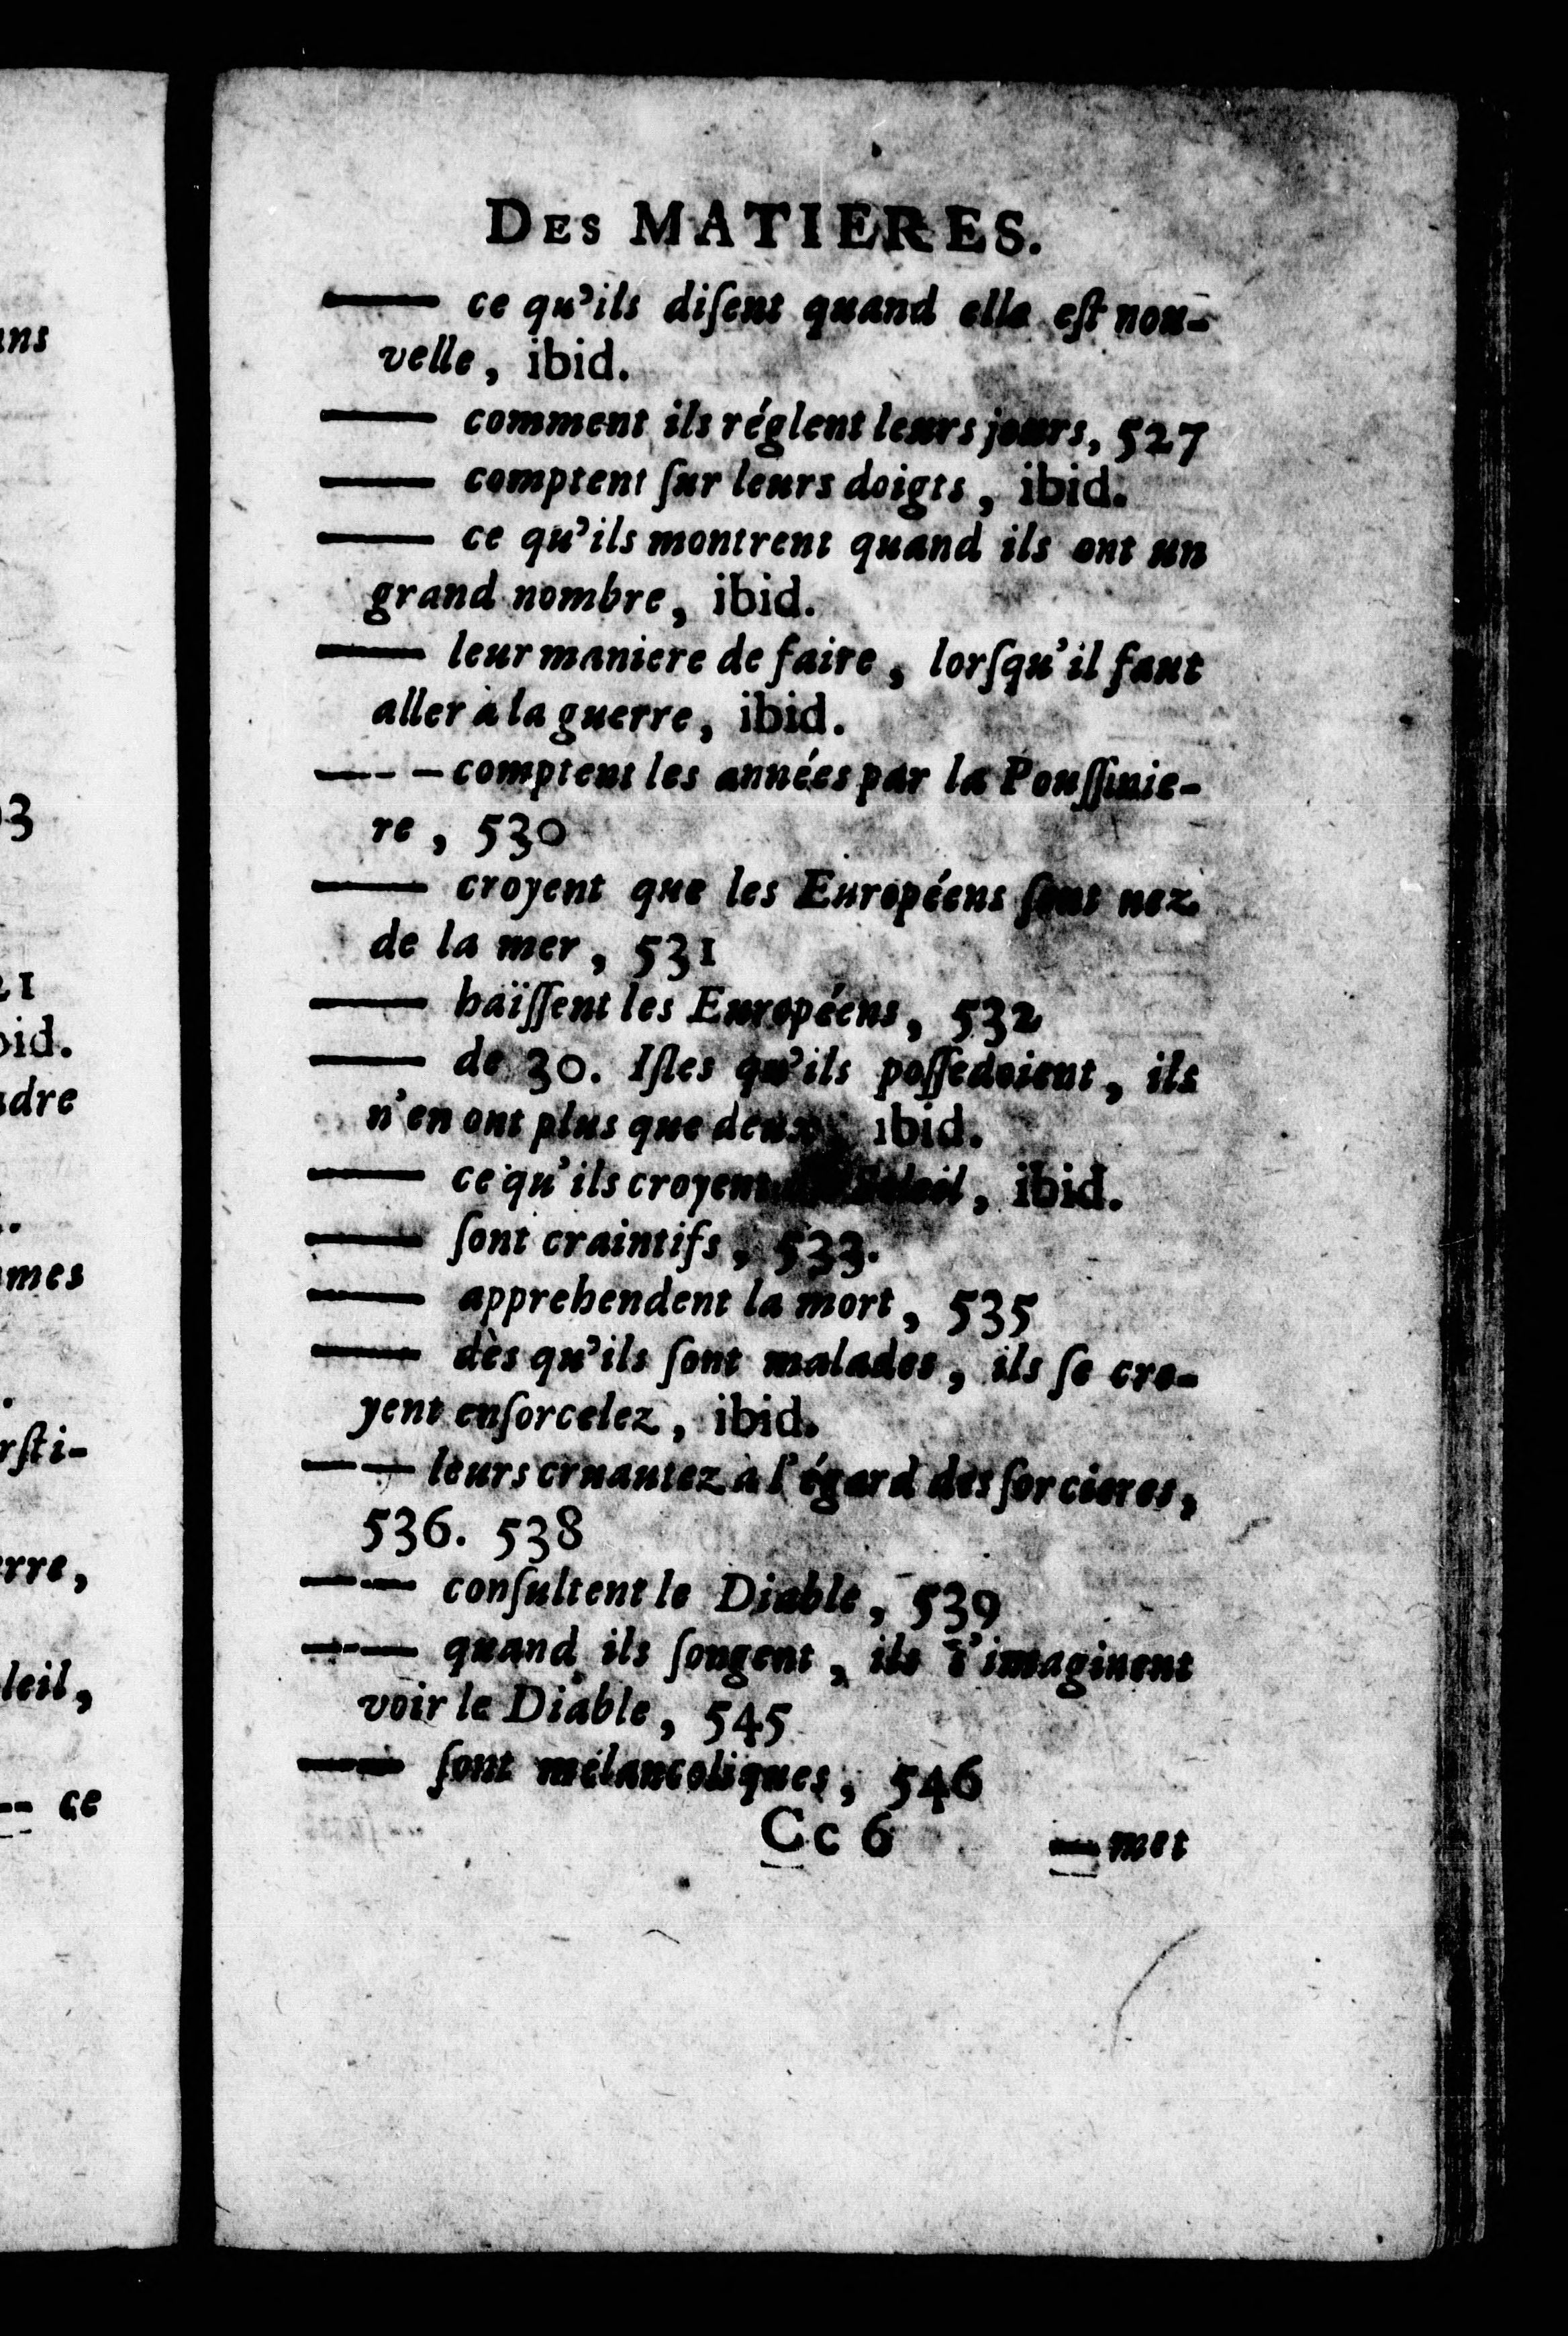 DES MATIERES.
—— ce qu'ils diſent quand elle eſt nou-
velle, ibid.
—— comment ils réglent leurs jours, 527
—— comptent ſur leurs doigts, ibid.
—— ce qu'ils montrent quand ils ont un
grand nombre, ibid.
—— leur maniere de faire, lorſqu'il faut
aller à la guerre, ibid.
—— comptent les années par la Pouſſinie-
re, 530
—— croyent que les Européens ſont nez
de la mer, 531
—— haïſſent les Européens, 532
—— de 30. Iſles qu'ils poſſedoient, ils
n'en ont plus que deux, ibid.
—— ce qu'ils croyent Soleil, ibid.
—— ſont craintifs, 533.
—— apprehendent la mort, 535
—— dès qu'ils ſont malades, ils ſe cro-
yent enſorcelez, ibid.
—— leurs cruautez à l'égard des ſorcieres,
536. 538
—— conſultent le Diable, 539
—— quand ils ſongent, ils s'imaginent
voir le Diable, 545
—— ſont mélancoliques, 546
Cc 6 — met